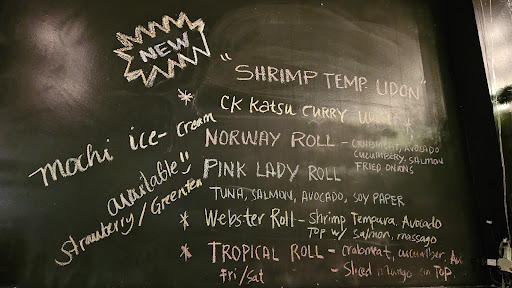 NEW
"SHRIMP TEMP. UDON"
* CK Katsu CURRY
Mochi ice-cream
available!!
Strawberry/Greentea
NORWAY ROLL - CRABMEAT, AVOCADO
CUCUMBERY, SALMON
FRIED ONIONS
PINK LADY ROLL
TUNA, SALMON, AVOCADO, SOY PAPER
* Webster Roll - Shrimp Tempura, Avocado
Top w/ Salmon, masago
* TROPICAL ROLL - Crabmeat, cucumber,
Fri/Sat - Sliced mango on Top.